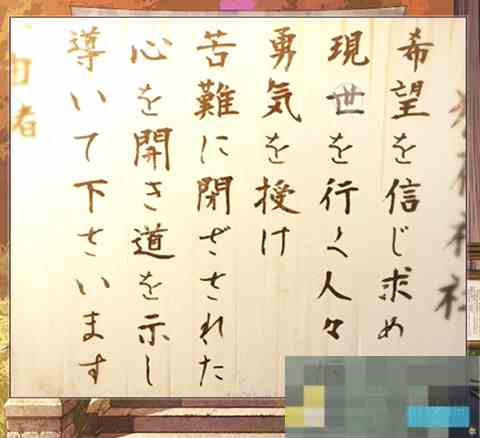 希望を信じ求め
現世を行く人々に
勇気を授け
苦難に閉ざされた
心を開き道を示し
導いて下さいます